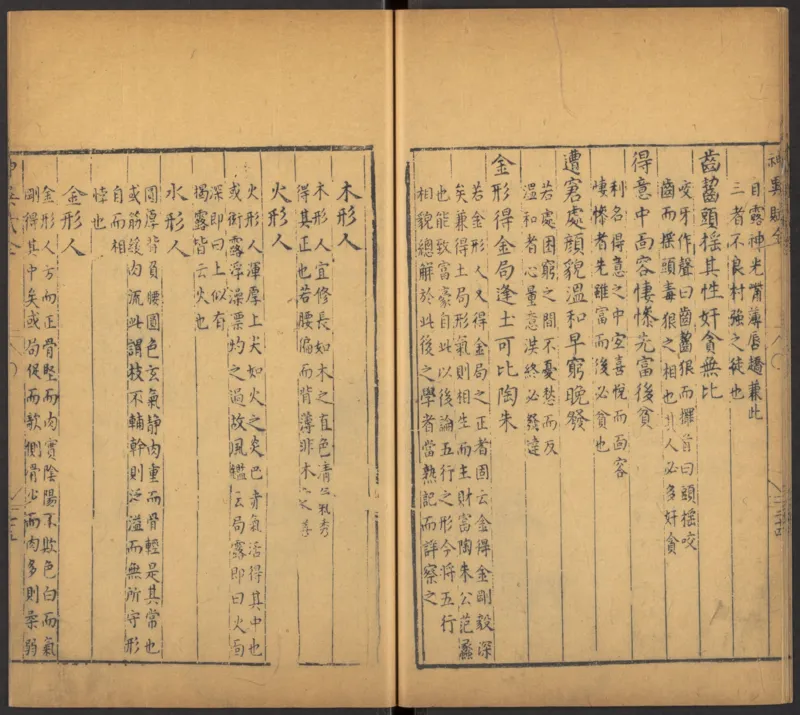 神異賦全
目露神光嘴薄唇趫兼此
三者不良村強之徒也
齒齧頭搖其性奸貪無比
咬牙作聲曰齒齧狠而擺首曰頭搖咬
齒而擺頭毒狠之相也此人必多奸貪
得意中面容悽慘先富後貧
利名得意之中宜喜悅而面容
悽慘者先雖富而後必貧也
遭窘處顏貌溫和早窮晚發
若處困窮之間不憂愁而反
溫和者心量意洪終必發達
金形得金局逢土可比陶朱
若金形人又得金局之正者固云金得金剛毅深
矣兼得土局形氣則相生而主財富陶朱公范蠡
也能致富豪自此以後論五行之形今將五行
相貌總解於此後之學者當熟記而詳察之
木形人
木形人宜修長如木之直色清氣秀
得其正也若腰偏而背薄非木之
火形人
火形人渾厚上尖如火之炎色赤氣活得其中也
或術露浮澡票灼之過故風鑑云局露即曰火局
深即曰土似有
揭露皆云火也
水形人
圓厚背負腰圓色玄氣靜肉重而骨輕是其常也
或筋緩肉流此謂枝不輔幹則泛溢而無所守形
自而相
悖也
金形人
金形人方而正骨堅而肉實陰陽不欺色白而氣
剛得其中矣或局促而欹側骨少而肉多則柔弱